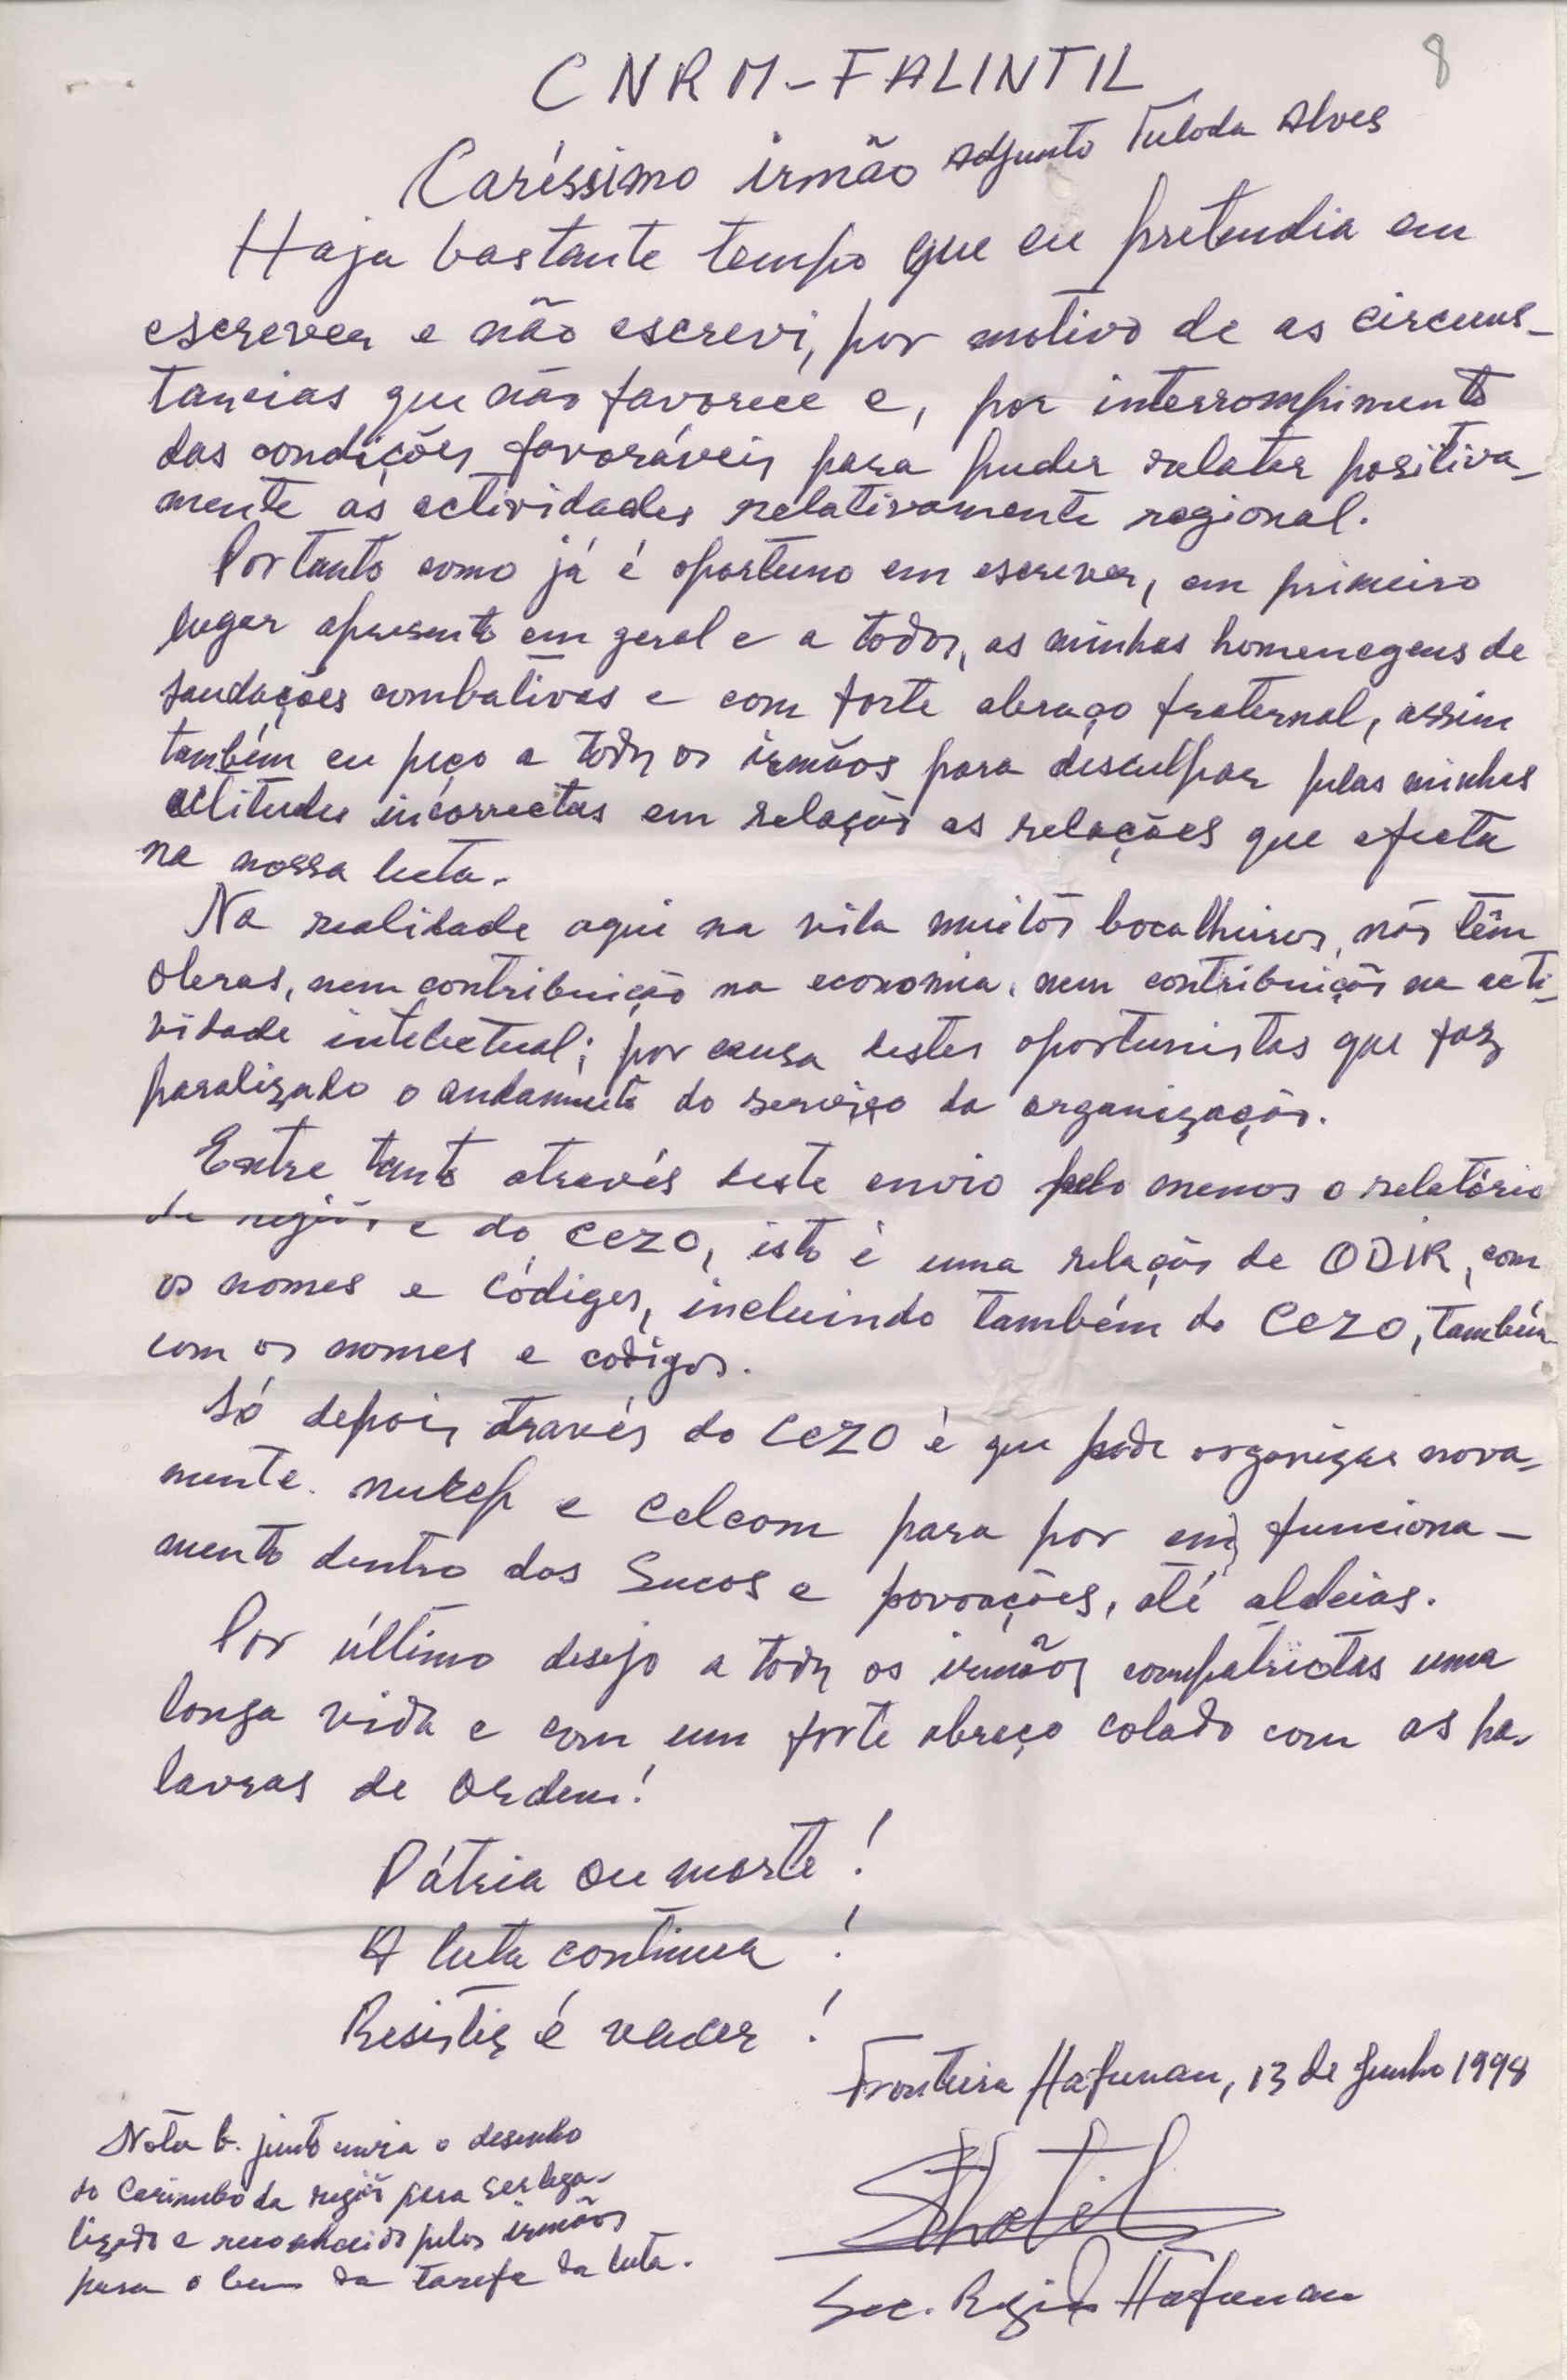 8
CNRM-FALINTIL
Caríssimo irmão Adjunto Tuloda Alves
Haja bastante tempo que eu pretendia em
escrever e não escrevi, por motivo de as circuns-
tancias que não favorece e, por interrompimento
das condições favoráveis para puder relatar positiva-
mente as actividades relativamente regional.
Portanto como já é oportuno em escrever, em primeiro
lugar apresento em geral e a todos, as minhas homenagens de
saudações combativas e com forte abraço fraternal, assim
também eu peço a todos os irmãos para desculpar pelas minhas
atitudes incorrectas em relação as relações que afecta
na nossa luta.
Na realidade aqui na vila muitos bocalheiros, não têm
obras, nem contribuição na economia, nem contribuição na acti-
vidade intelectual; por causa destes oportunistas que faz
paralizado o andamento do serviço da organização.
Entre tanto através deste envio pelo menos o relatório
da região e do CEZO, isto é uma relação de ODIR, com
os nomes e códigos, incluindo também do CEZO, também
com os nomes e codigos.
Só depois através do CEZO é que pode organizar nova-
mente. nurep e celcom para por em funciona-
mento dentro dos Sucos e povoações, até aldeias.
Por último desejo a todos os irmãos compatriotas uma
longa vida e com um forte abraço colado com as pa-
lavras de ordem!
Pátria ou morte!
A luta continua!
Resistir é vencer!
Fronteira Hafunau, 13 de Junho 1998
Nota b. junto envia o desenho
do Carimbo da região para ser lega-
lizado e reconhecido pelos irmãos
para o bem da tarefa da luta.
Sec. Região Hafunau